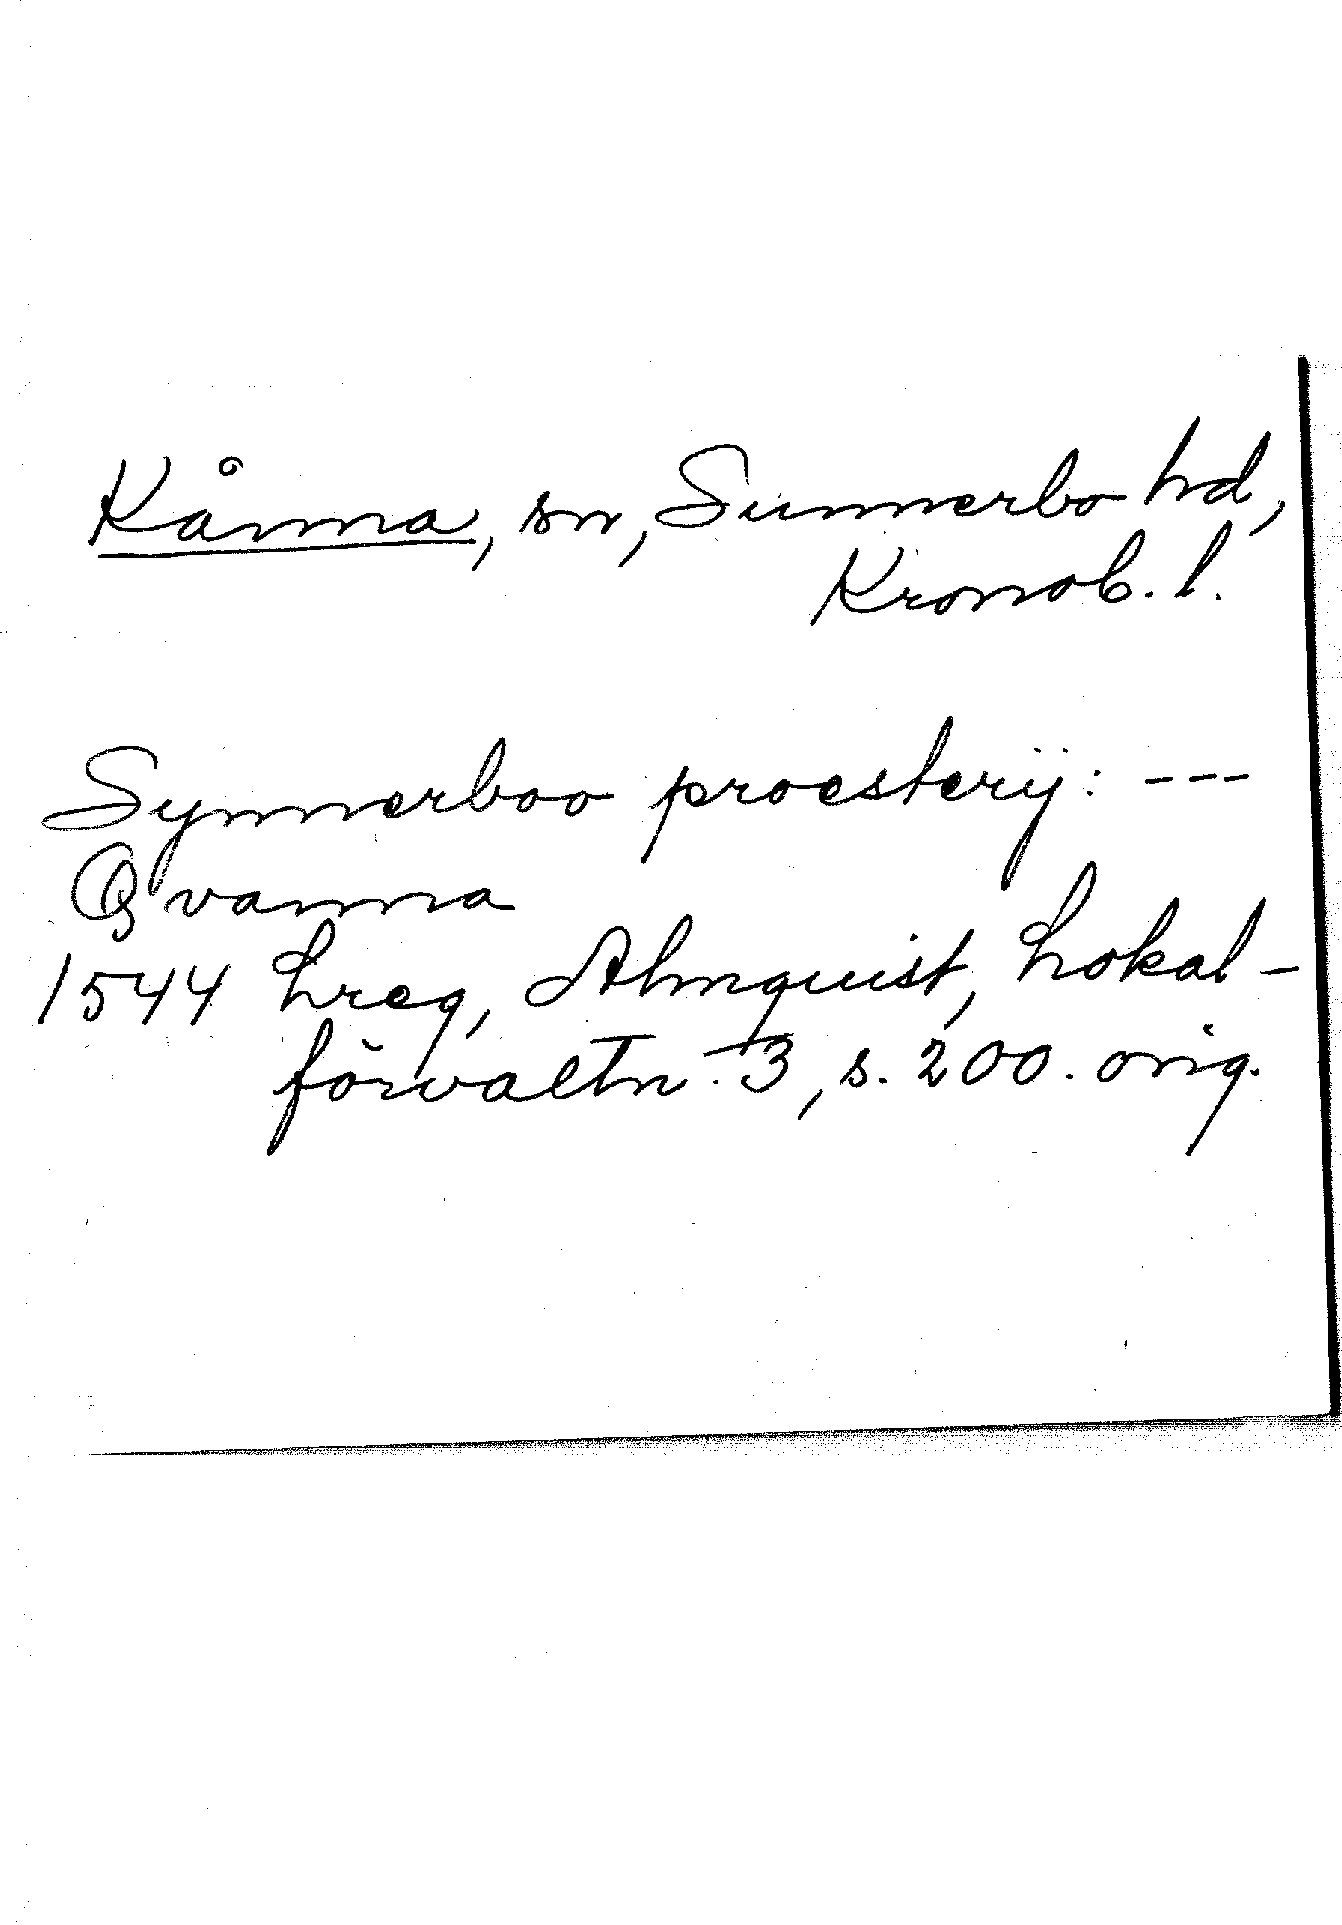 Kånna, sn, Sunnerbo hd,
Kronob. l.
Synnerboo proesterij: ---
Qvanna
1544 Lreg, Almquist, Lokal-
förvaltn. 3, s. 200. orig.